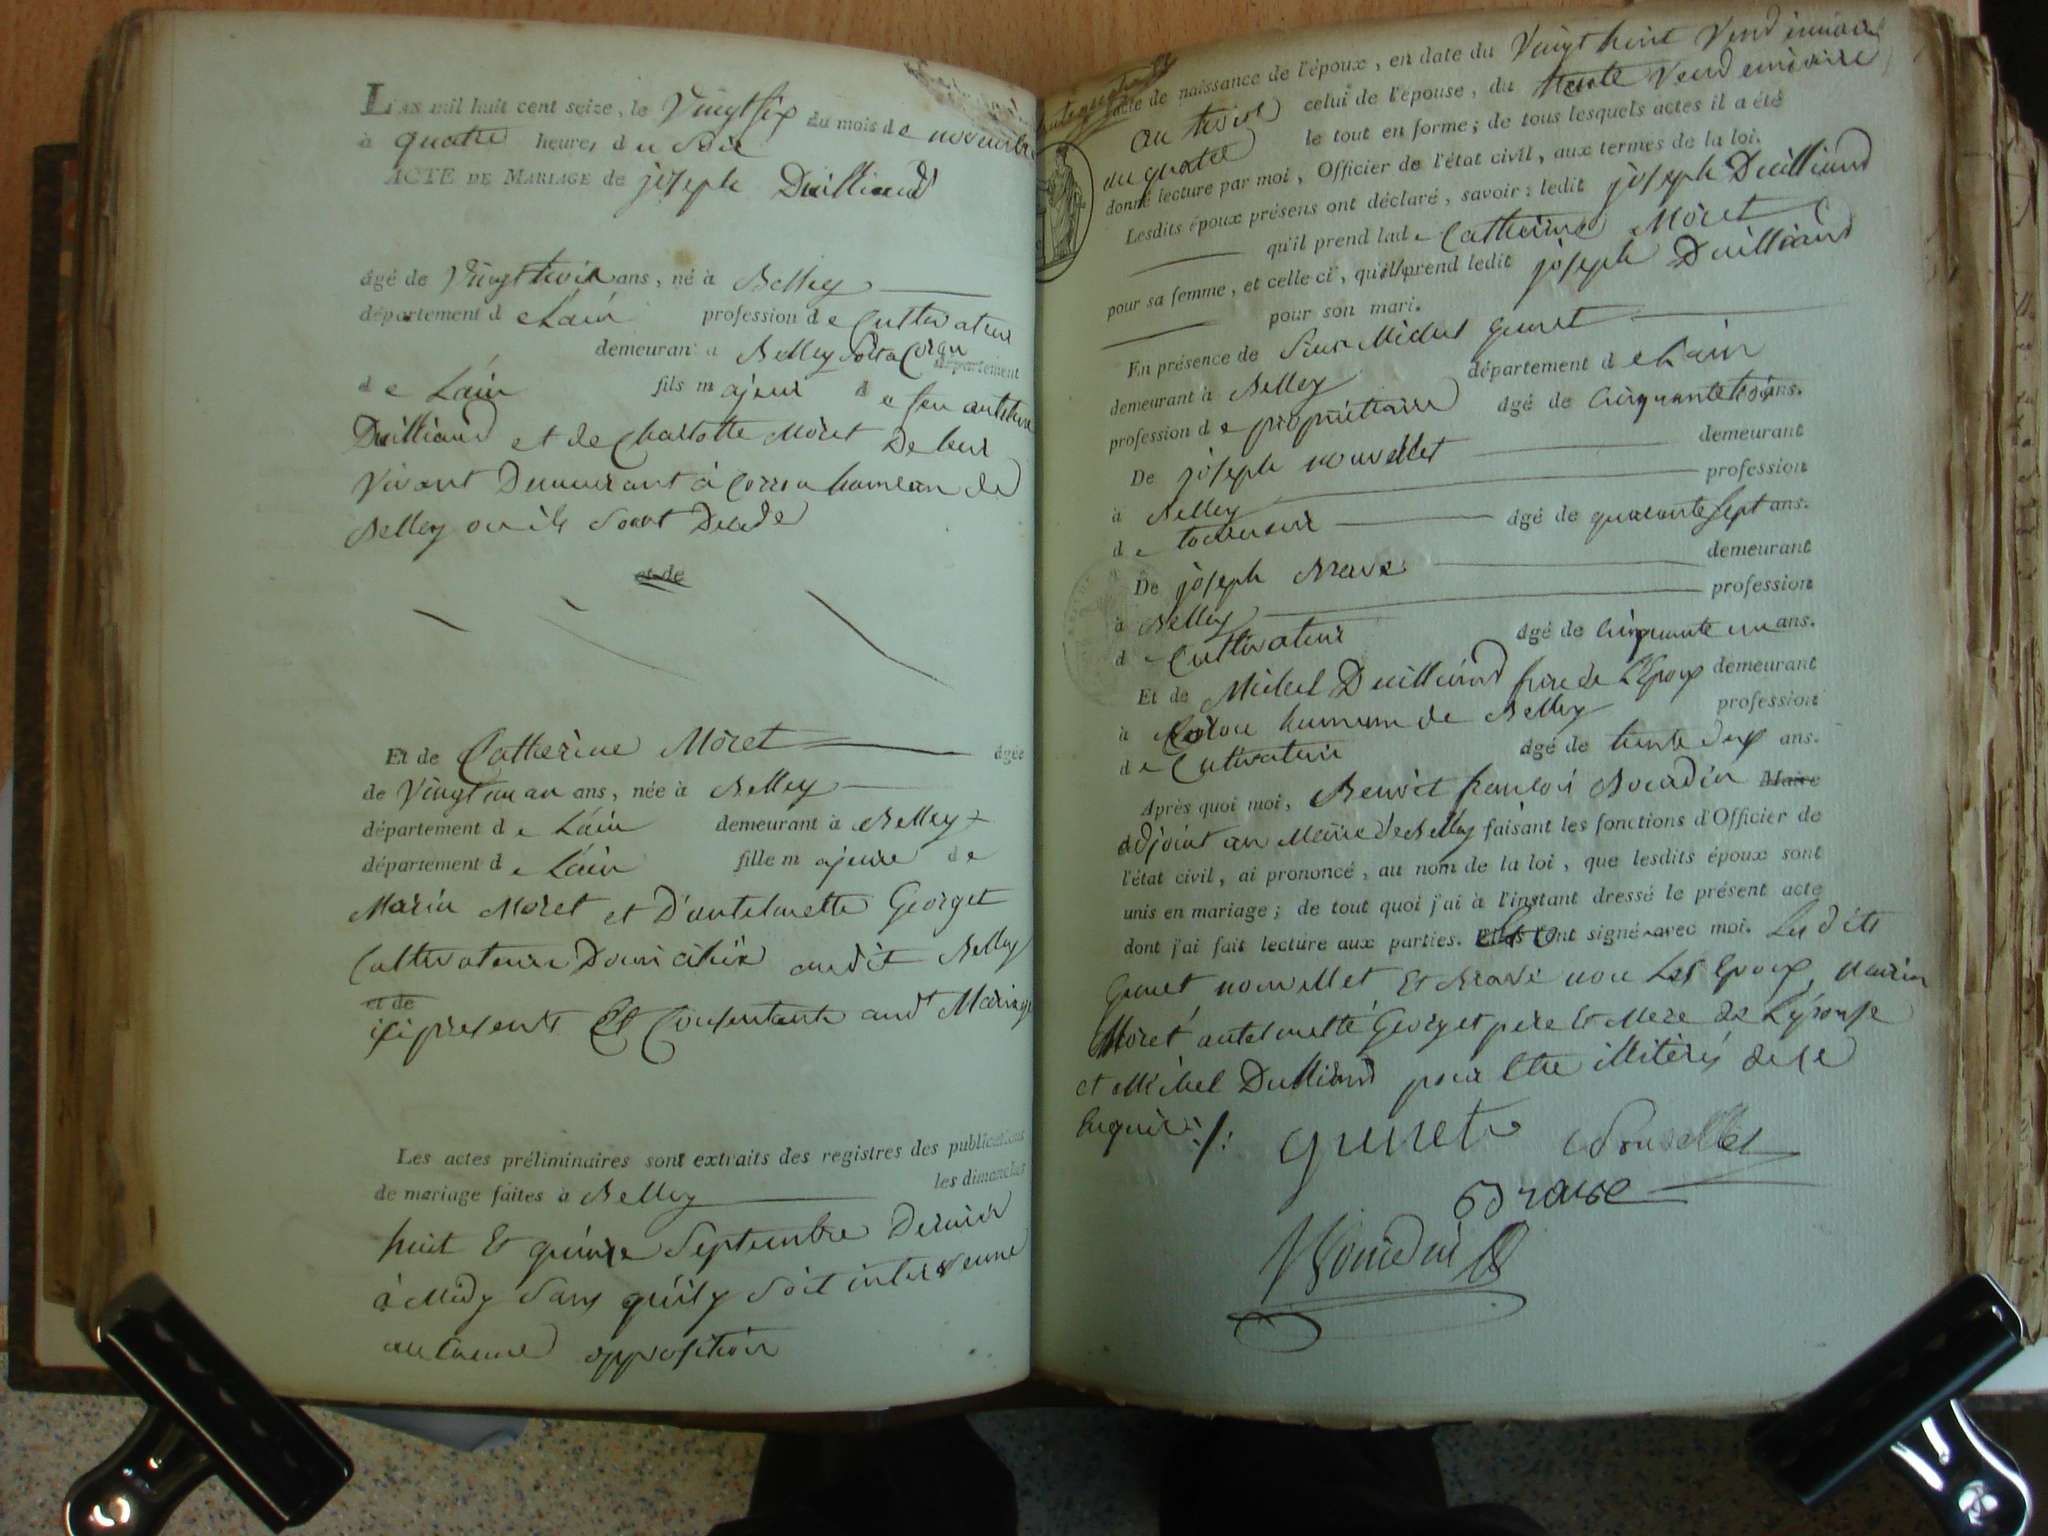 L'AN mil huit cent seize, le Vingt six du mois de novembre
à quatre heures du Soir
ACTE DE MARIAGE de joseph Duilliand
âgé de Vingt trois ans, né à Belley
département de Lain profession de Cultivateur
demeurant à Belley département
de Lain fils majeur de feu antelme
Duilliand et de Charlotte Moret De leur
Vivant Demeurant à Coron hameau de
Belley ou ils Sont Décédé
et de
Et de Catherine Moret âgée
de Vingt un an ans, née à Belley
département de Lain demeurant à Belley
département de Lain fille majeure de
Marin Moret et D'antelmette Georget
Cultivateurs Domiciliés audit Belley
et de
ici présents Et Consentants audt Mariage
Les actes préliminaires sont extraits des registres des publications
de mariage faites à Belley les dimanches
huit Et quinze Septembre Dernier
à Midy Sans quil y Soit intervenue
aucune opposition
acte de naissance de l'époux, en date du Vingt huit Vend émiaire
an trois celui de l'épouse, du trente Vend emiaire
an quatre le tout en forme; de tous lesquels actes il a été
donné lecture par moi, Officier de l'état civil, aux termes de la loi.
Lesdits époux présens ont déclaré, savoir: ledit joseph Duilliand
qu'il prend lade Catherine Moret
pour sa femme, et celle ci, qu'il prend ledit joseph Duilliand
pour son mari.
En présence de Sieur Michel Gunet
demeurant à Belley département de Lain
profession de propriétaire âgé de Cinquante trois ans.
De joseph nouvellet demeurant
à Belley profession
de âgé de quarante Sept ans.
De joseph Brave demeurant
à Belley profession
de Cultivateur âgé de Cinquante un ans.
Et de Michel Duilliand frère de L'Epoux demeurant
à Coron hameau de Belley profession
de Cultivateur âgé de trente deux ans.
Après quoi moi, Benoit françois Maire
adjoint au Maire de Belley faisant les fonctions d'Officier de
l'état civil, ai prononcé, au nom de la loi, que lesdits époux sont
unis en mariage; de tout quoi j'ai à l'instant dressé le présent acte
dont j'ai fait lecture aux parties. Elles ont signé avec moi. Les dits
Gunet nouvellet Et Brave non Les Epoux, Marin
Moret antelmette Georget père Et Mere de L'épouse
et Michel Duilliand pour Etre illitérés de ce
Enquis
gunet Nouvellet
Brave